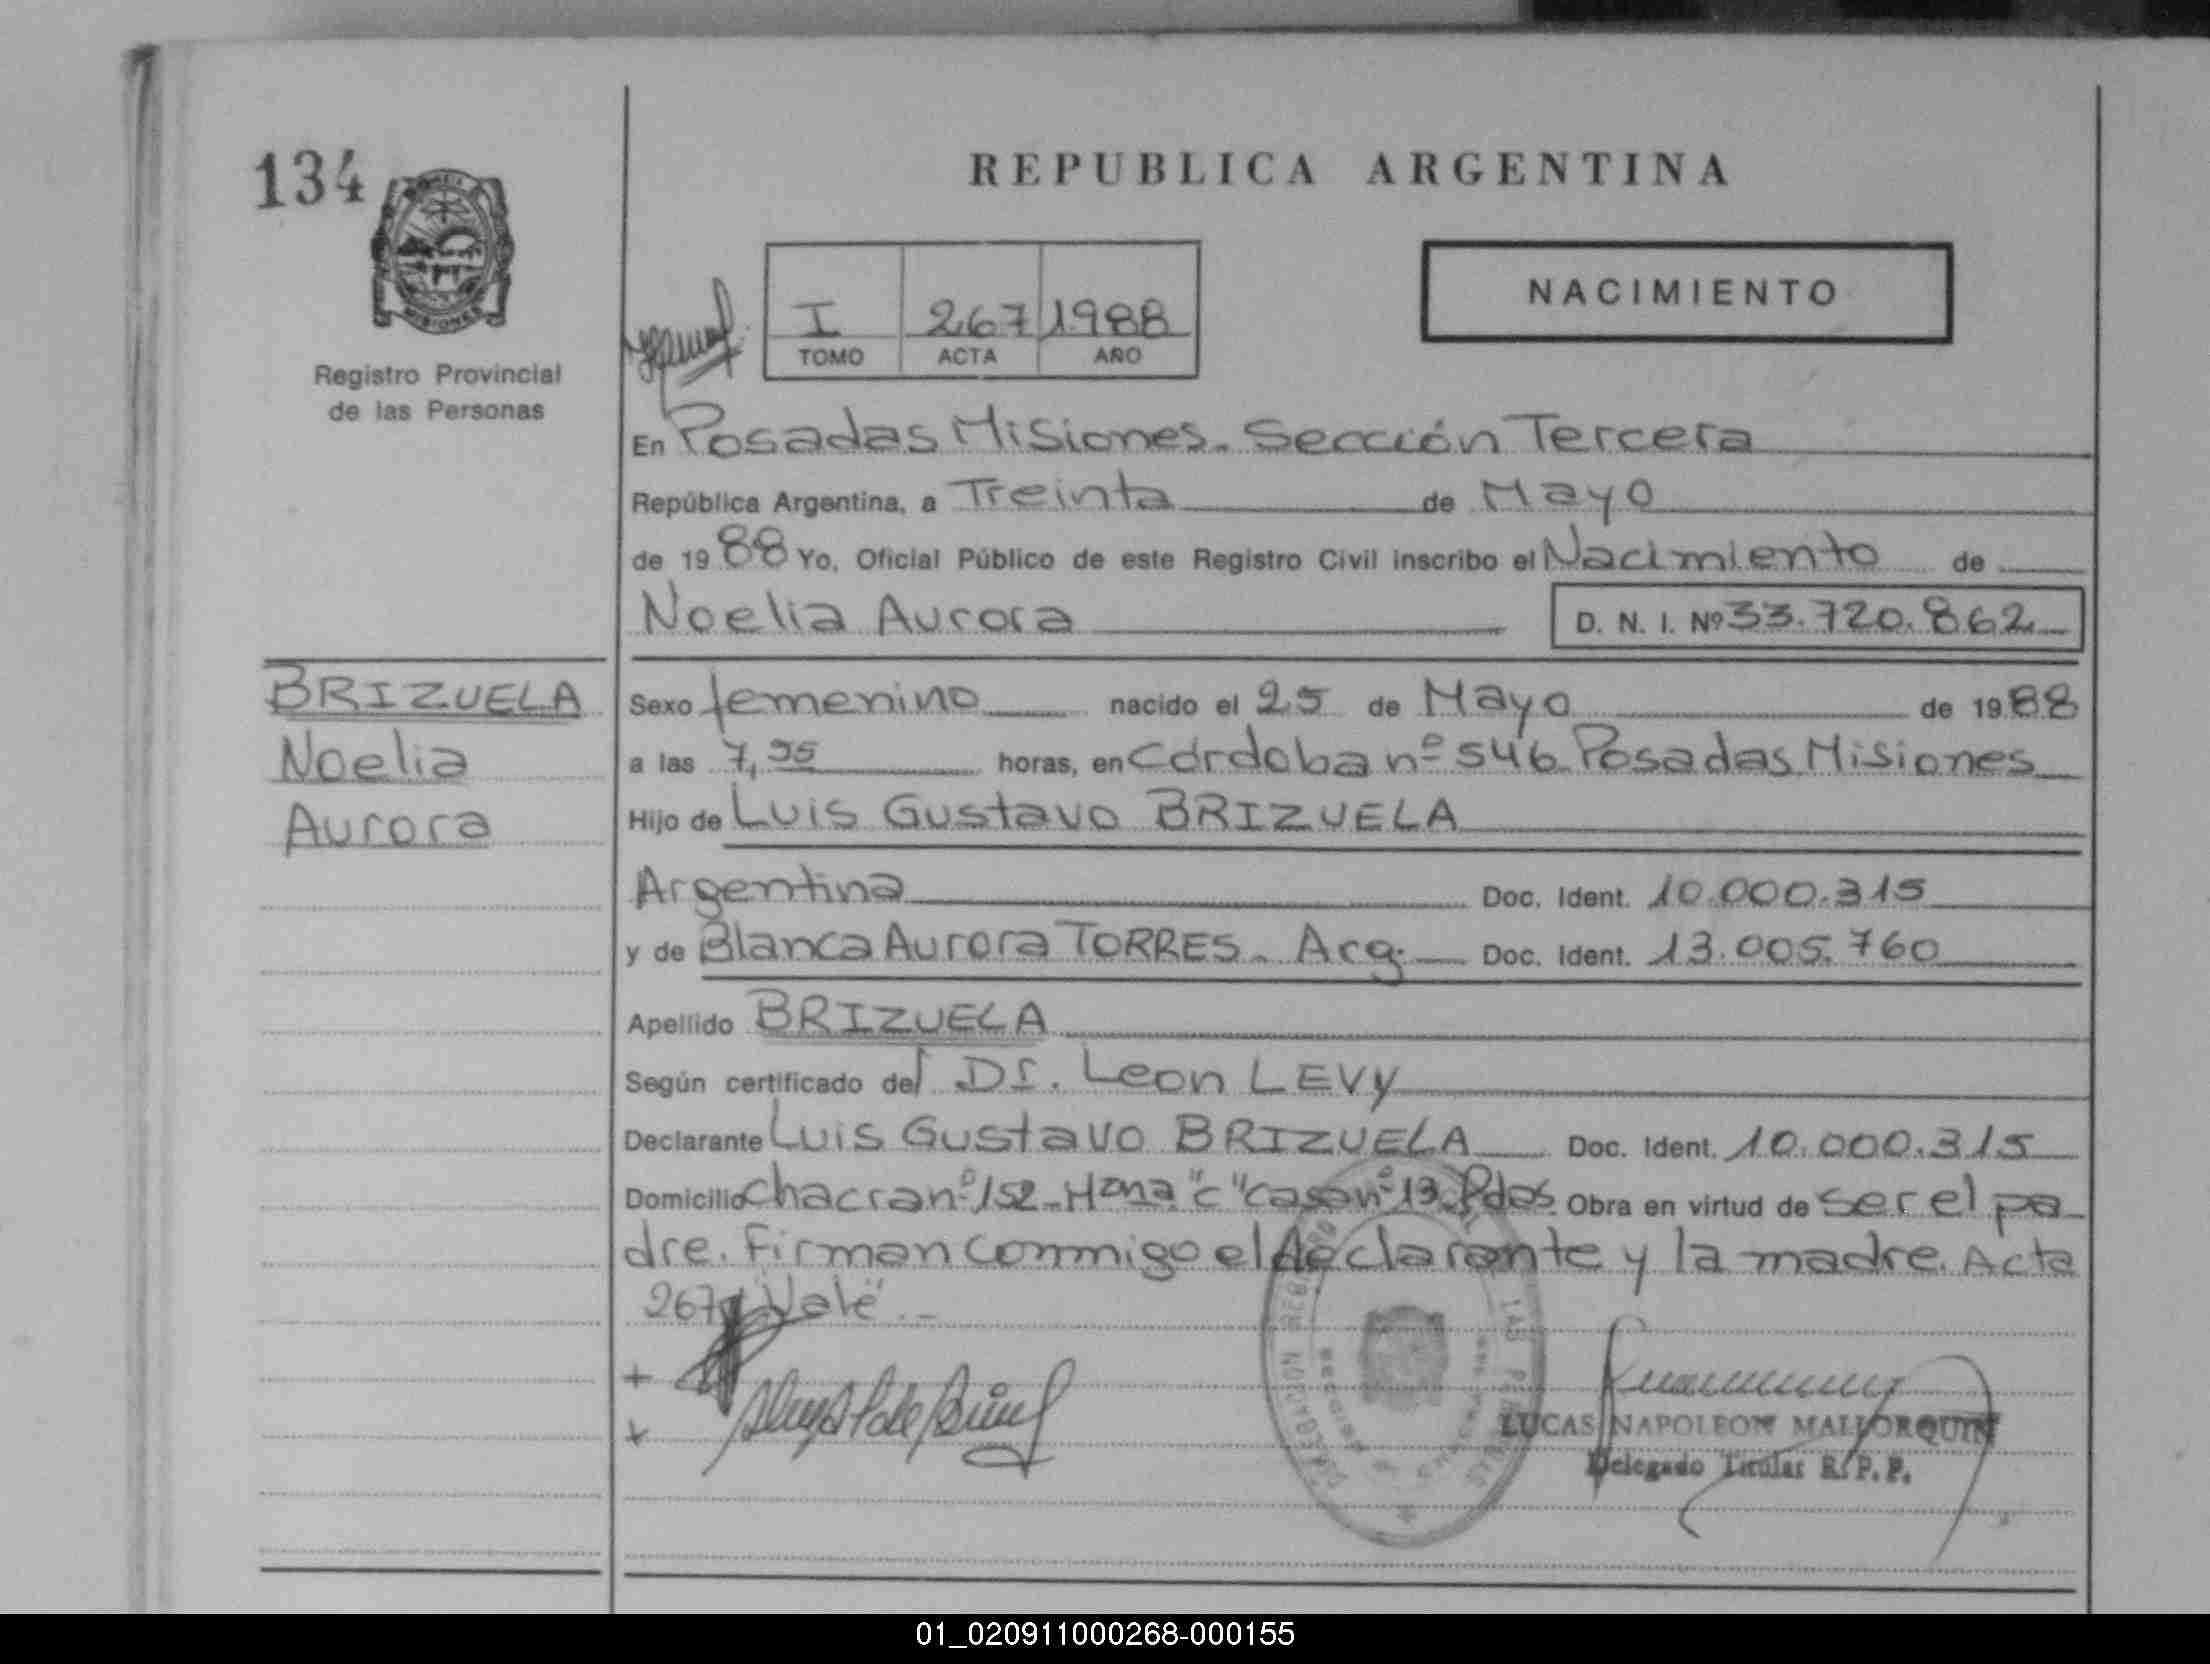 134
MISIONES
Registro Provincial
de las Personas
REPUBLICA ARGENTINA
I 267 1988
TOMO ACTA AÑO
NACIMIENTO
En Posadas Misiones. Sección Tercera
República Argentina, a Treinta de Mayo
de 1988 Yo, Oficial Público de este Registro Civil inscribo el Nacimiento de
Noelia Aurora D. N. I. Nº 33.720.862
BRIZUELA
Noelia
Aurora
Sexo femenino nacido el 25 de Mayo de 1988
a las 7,55 horas, en Córdoba nº 546 Posadas Misiones
Hijo de Luis Gustavo BRIZUELA
Argentina Doc. Ident. 10.000.315
y de Blanca Aurora TORRES. Arg. Doc. Ident. 13.005.760
Apellido BRIZUELA
Según certificado del Dr. Leon LEVY
Declarante Luis Gustavo BRIZUELA Doc. Ident. 10.000.315
Domicilio Chacra nº 152 - Mzna "C" Casa nº 13. Pdas. Obra en virtud de ser el pa
dre. Firman conmigo el declarante y la madre. Acta
267 "Vale". -
LUCAS NAPOLEON MALLORQUIN
Delegado Titular R. P. P.
01_020911000268-000155